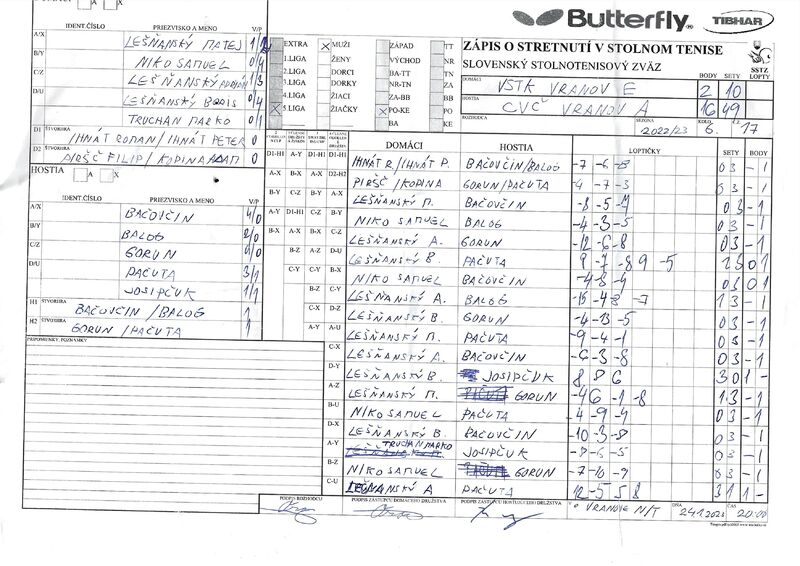 Butterfly TIBHAR
ZÁPIS O STRETNUTÍ V STOLNOM TENISE
SLOVENSKÝ STOLNOTENISOVÝ ZVÄZ
SSTZ
BODY SETY LOPTY
DOMÁCI VSTK VRANOV E 2 10
HOSTIA CVČ VRANOV A 16 49
ROZHODCA SEZÓNA 2022/23 KOLO 6. Č. 17
EXTRA X MUŽI ZÁPAD TT
1.LIGA ŽENY VÝCHOD NR
2.LIGA DORCI BA-TT TN
3.LIGA DORKY ZA-NR
4.LIGA ŽIACI ZA-BB BB
X 5.LIGA ŽIAČKY X PO-KE PO
BA KE
IDENT.ČÍSLO PRIEZVISKO A MENO V/P
A/X LEŠŇANSKÝ MATEJ
B/Y NIKO SAMUEL 0/4
C/Z LEŠŇANSKÝ 1/3
D/U LEŠŇANSKÝ BORIS 0/4
TRUCHAN MARKO 0/1
D1 ŠTVORHRA IHNÁT ROMAN/IHNÁT PETER 0
D2 ŠTVORHRA PIRŠČ FILIP/KOPINA ADAM 0
HOSTIA A X
IDENT.ČÍSLO PRIEZVISKO A MENO V/P
A/X BAČOVČIN 4/0
B/Y BALOG 2/0
C/Z GORUN 4/0
D/U PAČUTA 3/1
JOSIPČUK 1/1
H1 ŠTVORHRA BAČOVČIN/BALOG 1
H2 ŠTVORHRA GORUN/PAČUTA 1
PRIPOMIENKY, POZNÁMKY
DOMÁCI HOSTIA LOPTIČKY SETY BODY
IHNÁT R/IHNÁT P. BAČOVČIN/BALOG -7 -6 -8 03 -1
PIRŠČ/KOPINA GORUN/PAČUTA -4 -7 -3 03 -1
LEŠŇANSKÝ M. BAČOVČIN -8 -5 -7 03 -1
NIKO SAMUEL BALOG -4 -3 -5 03 -1
LEŠŇANSKÝ A. GORUN -12 -6 -8 03 -1
LEŠŇANSKÝ B. PAČUTA 9 -7 -8 9 -5 23 01
NIKO SAMUEL BAČOVČIN -4 -3 -4 03 01
LEŠŇANSKÝ A. BALOG -15 -4 8 -7 13 -1
LEŠŇANSKÝ B. GORUN -4 -13 -5 03 -1
LEŠŇANSKÝ M. PAČUTA -9 -4 -1 03 -1
LEŠŇANSKÝ A. BAČOVČIN -6 -3 -8 03 -1
LEŠŇANSKÝ B. JOSIPČUK 8 8 6 30 1-
LEŠŇANSKÝ M. GORUN -4 6 -1 -8 13 -1
NIKO SAMUEL PAČUTA -4 -9 -4 03 -1
LEŠŇANSKÝ B. BAČOVČIN -10 -3 -8 03 -1
TRUCHAN MARKO JOSIPČUK -7 -6 -5 03 -1
NIKO SAMUEL GORUN -7 -10 -9 03 -1
LEŠŇANSKÝ A PAČUTA 12 -5 5 8 31 1-
PODPIS ROZHODCU PODPIS ZÁSTUPCU DOMÁCEHO DRUŽSTVA PODPIS ZÁSTUPCU HOSŤUJÚCEHO DRUŽSTVA
V VRANOVE N/T DŇA 24.1.2023 ČAS 20:00